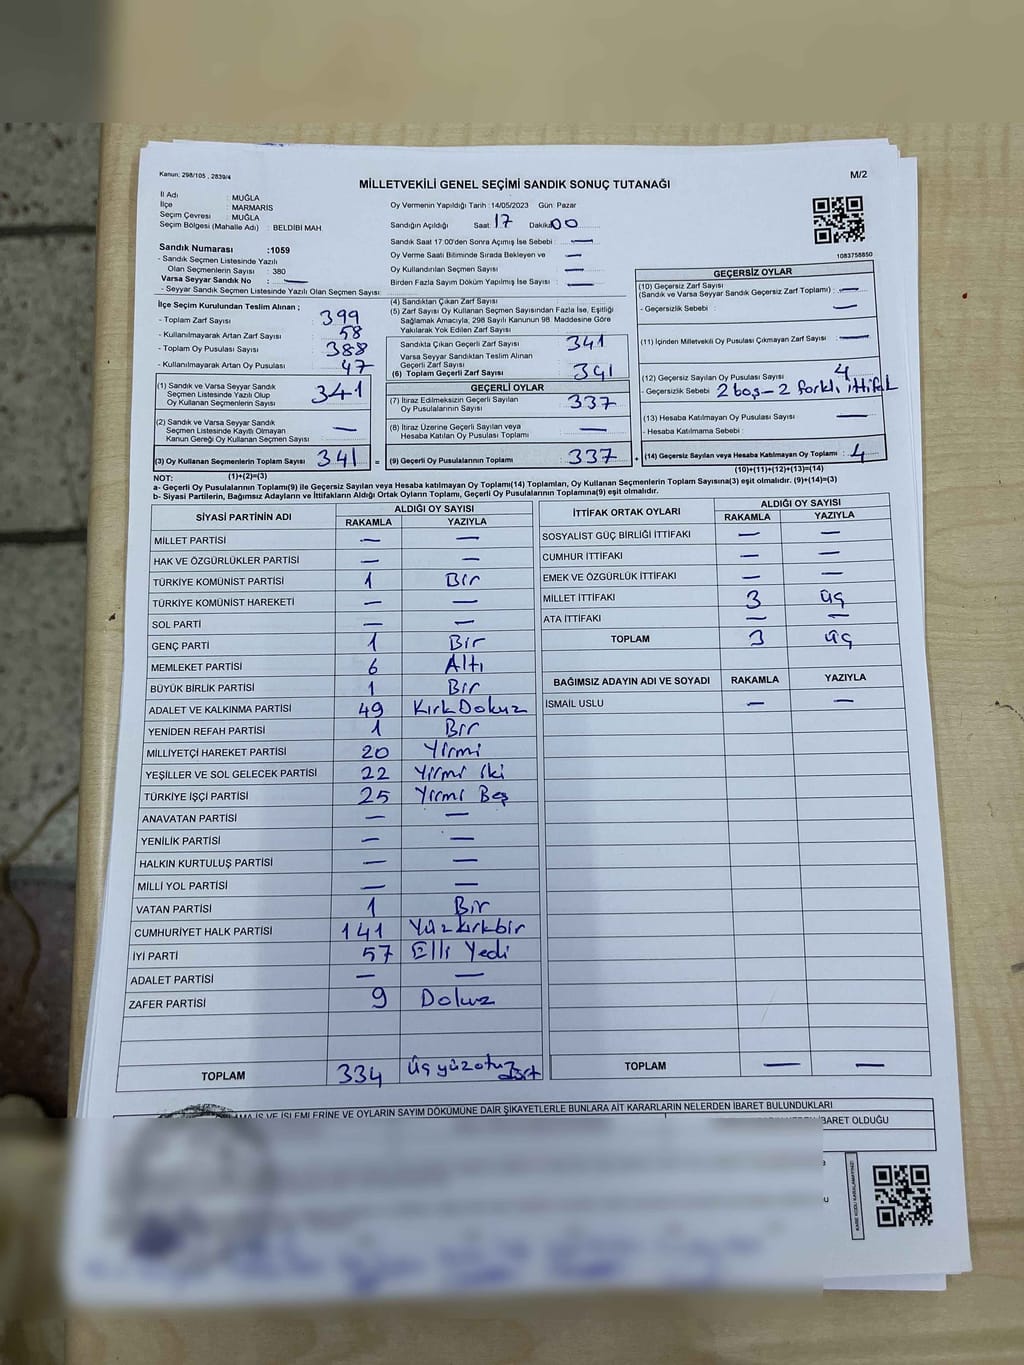 Kanun; 298/105 , 2839/4
M/2
MİLLETVEKİLİ GENEL SEÇİMİ SANDIK SONUÇ TUTANAĞI
İl Adı : MUĞLA
İlçe : MARMARİS
Seçim Çevresi : MUĞLA
Seçim Bölgesi (Mahalle Adı) : BELDİBİ MAH.
Sandık Numarası :1059
- Sandık Seçmen Listesinde Yazılı
Olan Seçmenlerin Sayısı : 380
Varsa Seyyar Sandık No : —
- Seyyar Sandık Seçmen Listesinde Yazılı Olan Seçmen Sayısı:
Oy Vermenin Yapıldığı Tarih :14/05/2023 Gün: Pazar
Sandığın Açıldığı Saat: 17 Dakika: 00
Sandık Saat 17:00'den Sonra Açımış İse Sebebi : —
Oy Verme Saati Bitiminde Sırada Bekleyen ve —
Oy Kullandırılan Seçmen Sayısı —
Birden Fazla Sayım Döküm Yapılmış İse Sayısı : —
1083758850
İlçe Seçim Kurulundan Teslim Alınan ;
- Toplam Zarf Sayısı : 399
- Kullanılmayarak Artan Zarf Sayısı : 58
- Toplam Oy Pusulası Sayısı : 388
- Kullanılmayarak Artan Oy Pusulası : 47
(1) Sandık ve Varsa Seyyar Sandık
Seçmen Listesinde Yazılı Olup
Oy Kullanan Seçmenlerin Sayısı 341
(2) Sandık ve Varsa Seyyar Sandık
Seçmen Listesinde Kayıtlı Olmayan
Kanun Gereği Oy Kullanan Seçmen Sayısı —
(3) Oy Kullanan Seçmenlerin Toplam Sayısı 341 =
(1)+(2)=(3)
(4) Sandıktan Çıkan Zarf Sayısı
(5) Zarf Sayısı Oy Kullanan Seçmen Sayısından Fazla İse, Eşitliği
Sağlamak Amacıyla, 298 Sayılı Kanunun 98. Maddesine Göre
Yakılarak Yok Edilen Zarf Sayısı
Sandıkta Çıkan Geçerli Zarf Sayısı 341
Varsa Seyyar Sandıktan Teslim Alınan
Geçerli Zarf Sayısı
(6) Toplam Geçerli Zarf Sayısı 341
GEÇERLİ OYLAR
(7) İtiraz Edilmeksizin Geçerli Sayılan
Oy Pusulalarının Sayısı 337
(8) İtiraz Üzerine Geçerli Sayılan veya
Hesaba Katılan Oy Pusulası Toplamı —
(9) Geçerli Oy Pusulalarının Toplamı 337 +
GEÇERSİZ OYLAR
(10) Geçersiz Zarf Sayısı
(Sandık ve Varsa Seyyar Sandık Geçersiz Zarf Toplamı) : —
- Geçersizlik Sebebi : —
(11) İçinden Milletvekili Oy Pusulası Çıkmayan Zarf Sayısı —
(12) Geçersiz Sayılan Oy Pusulası Sayısı 4
- Geçersizlik Sebebi : 2 boş – 2 farklı ittifak
(13) Hesaba Katılmayan Oy Pusulası Sayısı —
- Hesaba Katılmama Sebebi :
(14) Geçersiz Sayılan veya Hesaba Katılmayan Oy Toplamı : 4
(10)+(11)+(12)+(13)=(14)
NOT:
a- Geçerli Oy Pusulalarının Toplamı(9) ile Geçersiz Sayılan veya Hesaba katılmayan Oy Toplamı(14) Toplamları, Oy Kullanan Seçmenlerin Toplam Sayısına(3) eşit olmalıdır. (9)+(14)=(3)
b- Siyasi Partilerin, Bağımsız Adayların ve İttifakların Aldığı Ortak Oyların Toplamı, Geçerli Oy Pusulalarının Toplamına(9) eşit olmalıdır.
SİYASİ PARTİNİN ADI ALDIĞI OY SAYISI
RAKAMLA YAZIYLA
MİLLET PARTİSİ — —
HAK VE ÖZGÜRLÜKLER PARTİSİ — —
TÜRKİYE KOMÜNİST PARTİSİ 1 Bir
TÜRKİYE KOMÜNİST HAREKETİ — —
SOL PARTİ — —
GENÇ PARTİ 1 Bir
MEMLEKET PARTİSİ 6 Altı
BÜYÜK BİRLİK PARTİSİ 1 Bir
ADALET VE KALKINMA PARTİSİ 49 Kırk Dokuz
YENİDEN REFAH PARTİSİ 1 Bir
MİLLİYETÇİ HAREKET PARTİSİ 20 Yirmi
YEŞİLLER VE SOL GELECEK PARTİSİ 22 Yirmi iki
TÜRKİYE İŞÇİ PARTİSİ 25 Yirmi Beş
ANAVATAN PARTİSİ — —
YENİLİK PARTİSİ — —
HALKIN KURTULUŞ PARTİSİ — —
MİLLİ YOL PARTİSİ — —
VATAN PARTİSİ 1 Bir
CUMHURİYET HALK PARTİSİ 141 Yüzkırkbir
İYİ PARTİ 57 Elli Yedi
ADALET PARTİSİ — —
ZAFER PARTİSİ 9 Dokuz
TOPLAM 334 üçyüzotuz
İTTİFAK ORTAK OYLARI ALDIĞI OY SAYISI
RAKAMLA YAZIYLA
SOSYALİST GÜÇ BİRLİĞİ İTTİFAKI — —
CUMHUR İTTİFAKI — —
EMEK VE ÖZGÜRLÜK İTTİFAKI — —
MİLLET İTTİFAKI 3 üç
ATA İTTİFAKI — —
TOPLAM 3 üç
BAĞIMSIZ ADAYIN ADI VE SOYADI RAKAMLA YAZIYLA
İSMAİL USLU — —
TOPLAM — —
İŞLEMLERİNE VE OYLARIN SAYIM DÖKÜMÜNE DAİR ŞİKAYETLERLE BUNLARA AİT KARARLARIN NELERDEN İBARET BULUNDUKLARI
İBARET OLDUĞU